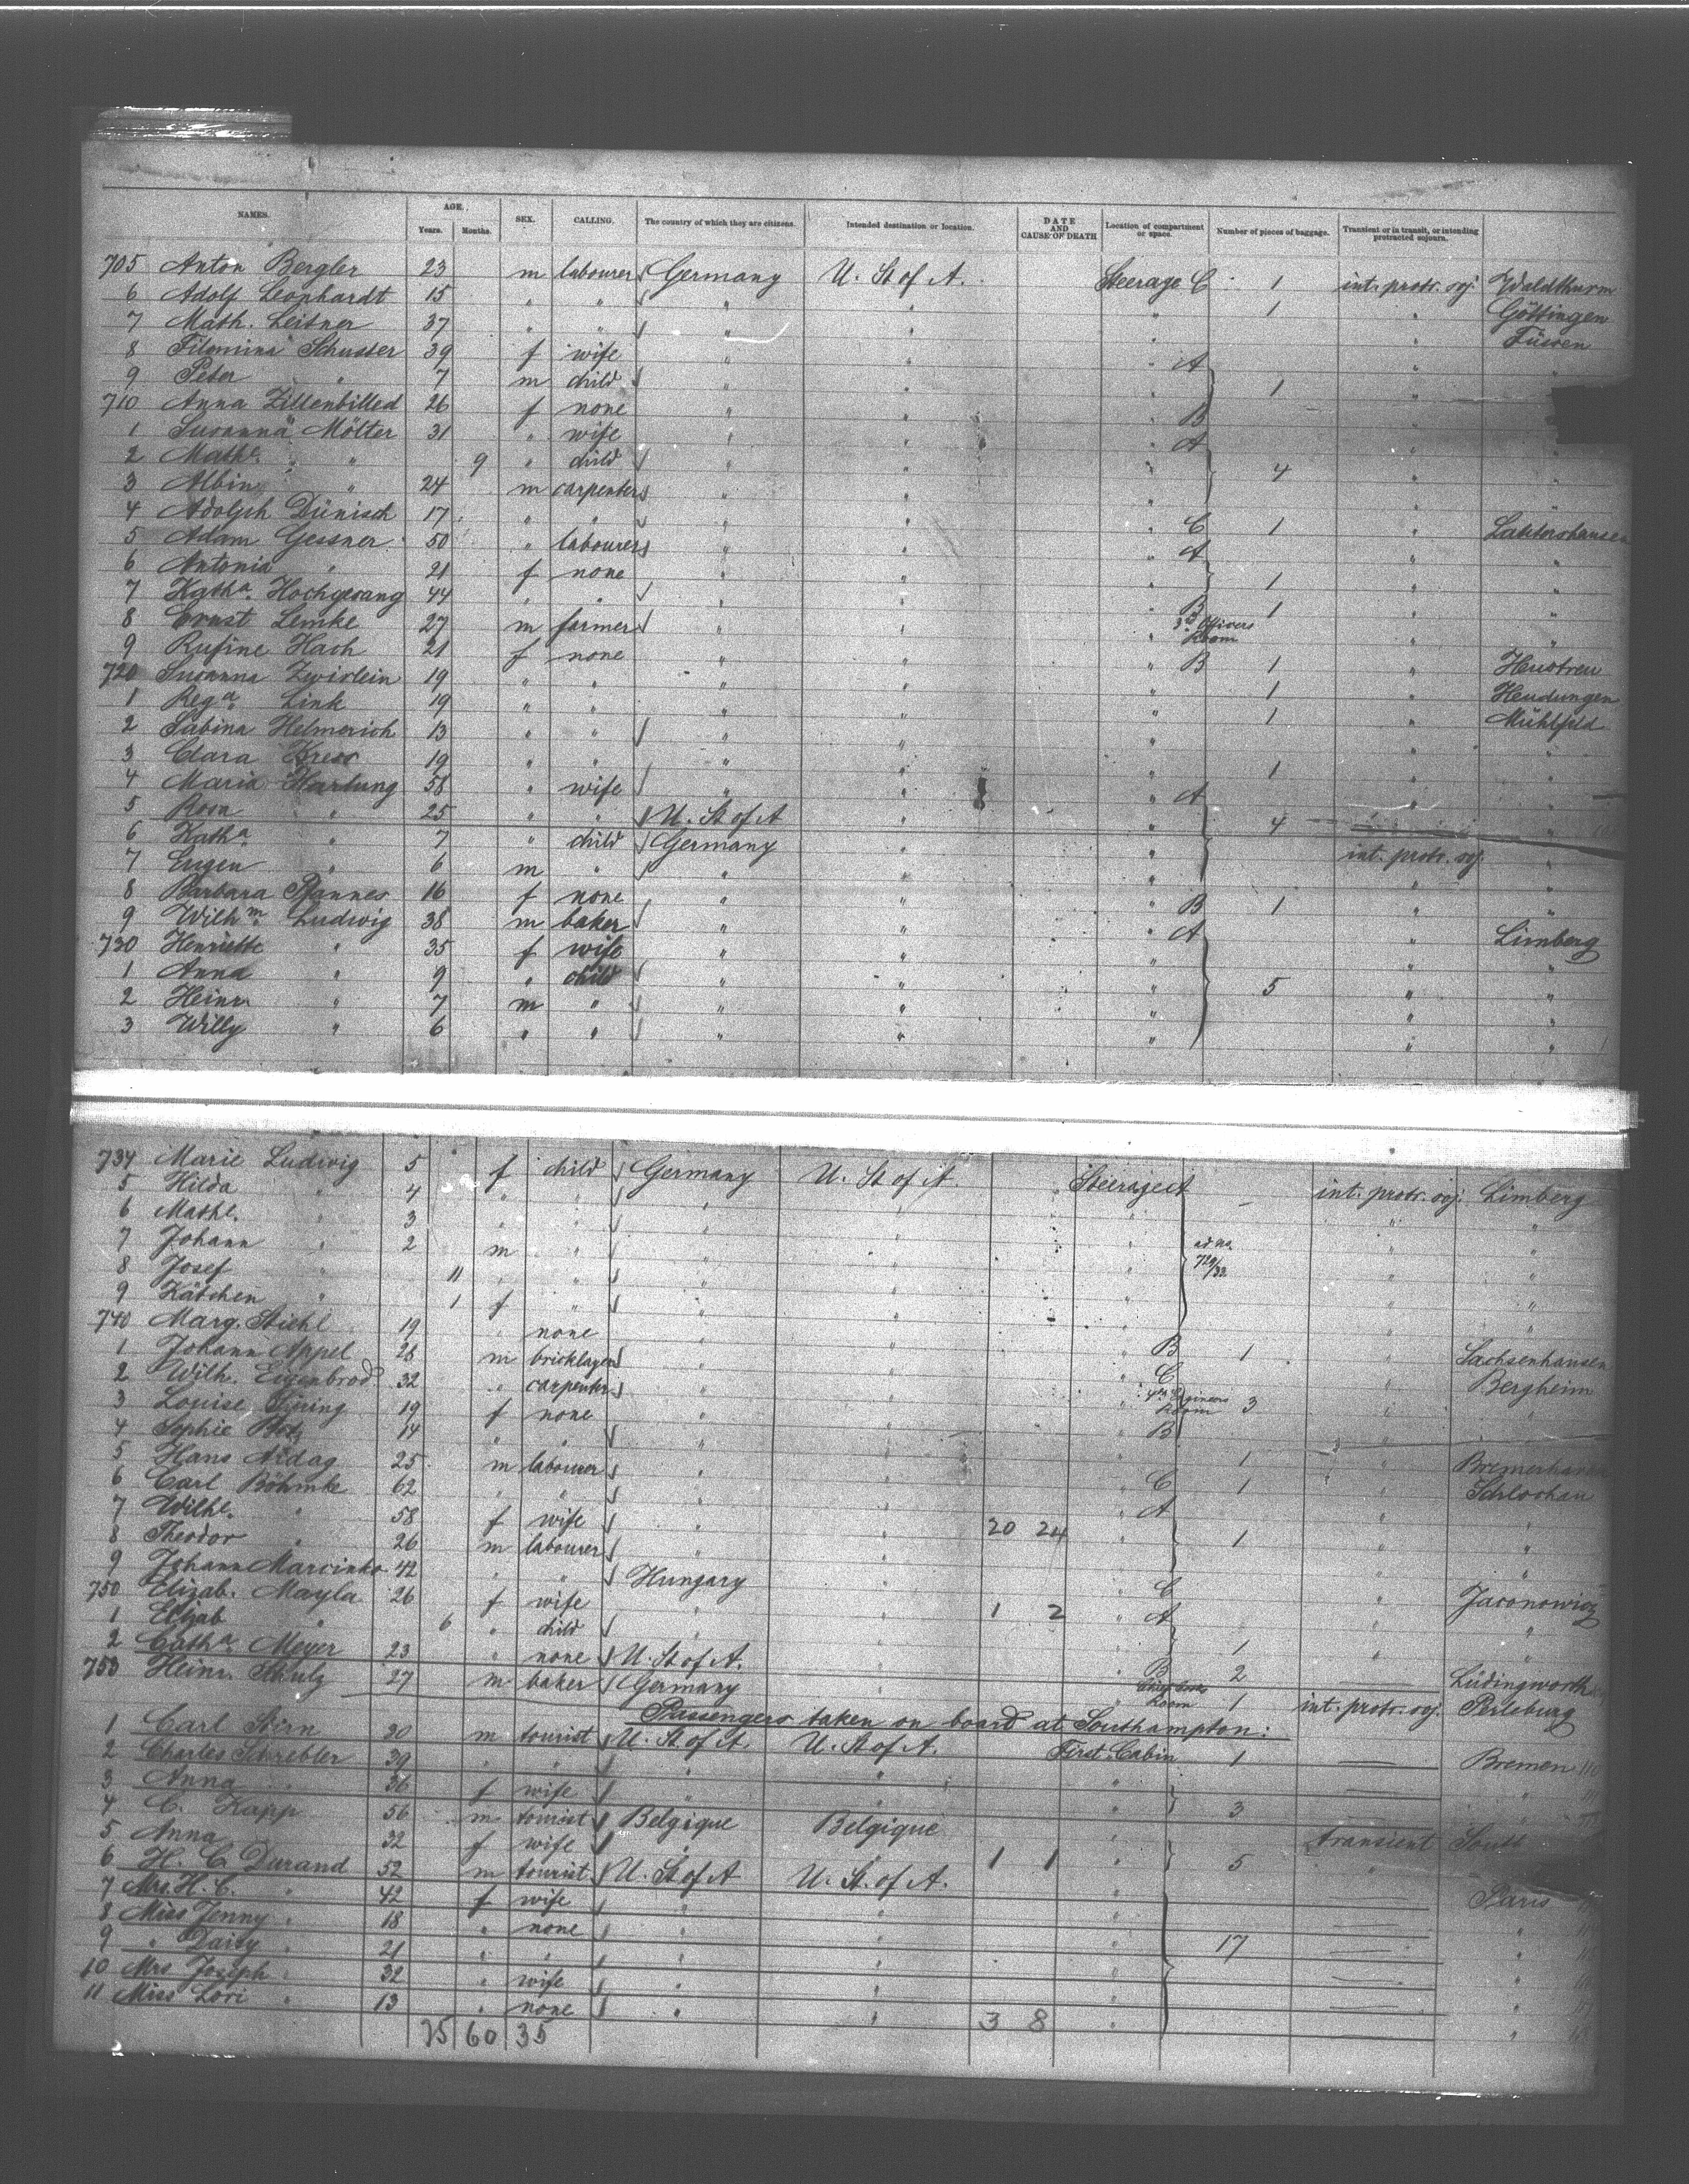 NAMES. AGE. Years. Months. SEX. CALLING. The country of which they are citizens. Intended destination or location. DATE AND CAUSE OF DEATH Location of compartment or space. Number of pieces of baggage. Transient or in transit, or intending protracted sojourn.
705 Anton Bergler 23 m labourer Germany U. St of A. Steerage C 1 int. protr. soj. Waldthurn
6 Adolf Leonhardt 15 " " " " " 1 " Göttingen
7 Math. Leitner 37 " " " " " " Füssen
8 Filomina Schuster 39 f wife " " " A " "
9 Peter " 7 m child " " " 1 "
710 Anna 26 f none " " " B "
1 Susanna Mölter 31 " wife " " " A "
2 Mathe. " 9 " child " " " 4 " "
3 Albin " 24 m carpenter " " " " "
4 Adolph Dünisch 17 " " " " " C 1 "
5 Adam Gessner 50 " labourer " " " A " "
6 Antonia " 21 f none " " " 1 " "
7 Katha. Hochgesang 44 " " " " " B 1 " "
8 Ernst Lemke 27 m farmer " " " 3rd Officers Room " "
9 Rufine Hach 21 f none " " " B 1 " Heustreu
720 Susanna Zwirlein 19 " " " " " 1 " Hendungen
1 Rega. Link 19 " " " " " 1 " Mühlfeld
2 Sabina Helmerich 13 " " " " " " "
3 Clara Kress 19 " " " " " 1 " "
4 Maria Hartung 58 " wife " " " A "
5 Rosa " 25 " " U. St of A " " 4 "
6 Katha. " 7 " child Germany " " int. protr. soj. "
7 Eugen " 6 m " " " " " "
8 Barbara Pfannes 16 f none " " " B 1 " "
9 Wilhm. Ludwig 38 m baker " " " A " Limberg
730 Henriette " 35 f wife " " " " "
1 Anna " 9 " child " " " 5 " "
2 Heinr. " 7 m " " " " " "
3 Willy " 6 " " " " " " "
734 Marie Ludwig 5 f child Germany U. St of A Steerage A int. protr. soj. Limberg
5 Hilda " 4 " " " " " " "
6 Mathl. " 3 " " " " " ad no. " "
7 Johann " 2 m " " " " 729/33 " "
8 Josef " 11 " " " " " " "
9 Kätchen " 1 f " " " " " "
740 Marg. Stiehl 19 " none " " " B 1 " Sachsenhausen
1 Johann Appel 28 m bricklayer " " " C " Bergheim
2 Wilh. Eigenbrod 32 " carpenter " " 4th Engineers Room 3 " "
3 Louise 19 f none " " " B "
4 Sophie 14 " " " " " 1 "
5 Hans 25 m labourer " " " C 1 "
6 Carl Böhmke 62 " " " " " A " Schlochau
7 Wilhe. " 58 f wife " " 20 24 1 " "
8 Theodor " 26 m labourer " " " " "
9 Johann Marcinko 42 " " Hungary " " C "
750 Elizab. Mayla 26 f wife " " 1 2 " A " "
1 Elizab " 6 " child " " 1 " "
2 Catha. Meyer 23 " none U. St of A. " " B 2 Lüdingworth
753 Heinr. Schulz 27 m baker Germany " Room 1 int. protr. soj. Perleburg
Passengers taken on board at Southampton:
1 Carl Stirn 30 m tourist U. St of A. U. St of A. First Cabin 1 Bremen
2 Charles Schrebler 39 " " " " " "
3 Anna " 36 f wife " " " 3
4 C. Kapp 56 m tourist Belgique Belgique " transient
5 Anna " 32 f wife " " 1 1 " 5 "
6 H. C. Durand 52 m tourist U. St of A U. St. of A. " Paris
7 Mrs. H. C. " 42 f wife " " " "
8 Miss Jenny " 18 " none " " " 17 "
9 " Daisy " 21 " " " " " "
10 Mrs Joseph " 32 " wife " " " "
11 Miss Lori " 13 " none " " 3 8 " "
60 35